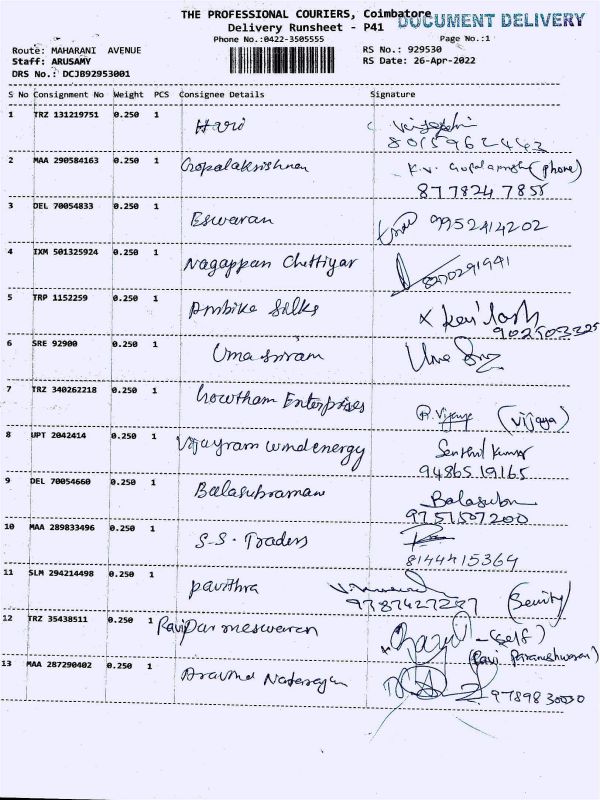 THE PROFESSIONAL COURIERS, Coimbatore
DOCUMENT DELIVERY
Delivery Runsheet - P41
Phone No.:0422-3505555
Page No.:1
Route: MAHARANI AVENUE
RS No.: 929530
Staff: ARUSAMY
RS Date: 26-Apr-2022
DRS No.: DCJB92953001
S No Consignment No Weight PCS Consignee Details Signature
1 TRZ 131219751 0.250 1 Hari
2 MAA 290584163 0.250 1 Gopalakrishnan (phone)
877824 7855
3 DEL 70054833 0.250 1 Eswaran 9952414202
4 IXM 501325924 0.250 1 Nagappan Chettiyar
8270291941
5 TRP 1152259 0.250 1 Ambika Silks x
6 SRE 92900 0.250 1 Uma Sriram
7 TRZ 340262218 0.250 1 Gowtham Enterprises (vijaya)
8 UPT 2042414 0.250 1 Vijayram windenergy Senthil Kumar
94865 19165
9 DEL 70054660 0.250 1 Balasubraman Balasubn
9751507200
10 MAA 289833496 0.250 1 S.S. Traders
8144415364
11 SLM 294214498 0.250 1 pavithra
12 TRZ 35438511 0.250 1 Ravi Parmeswaran (self)
(Ravi Parameshwaran)
13 MAA 287290402 0.250 1 Aravind Natarajan
9789830030